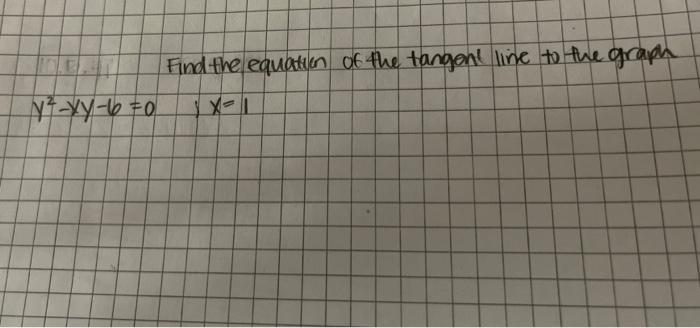 Find the equation of the tangent line to the graph
y²-xy-6=0 ; x=1